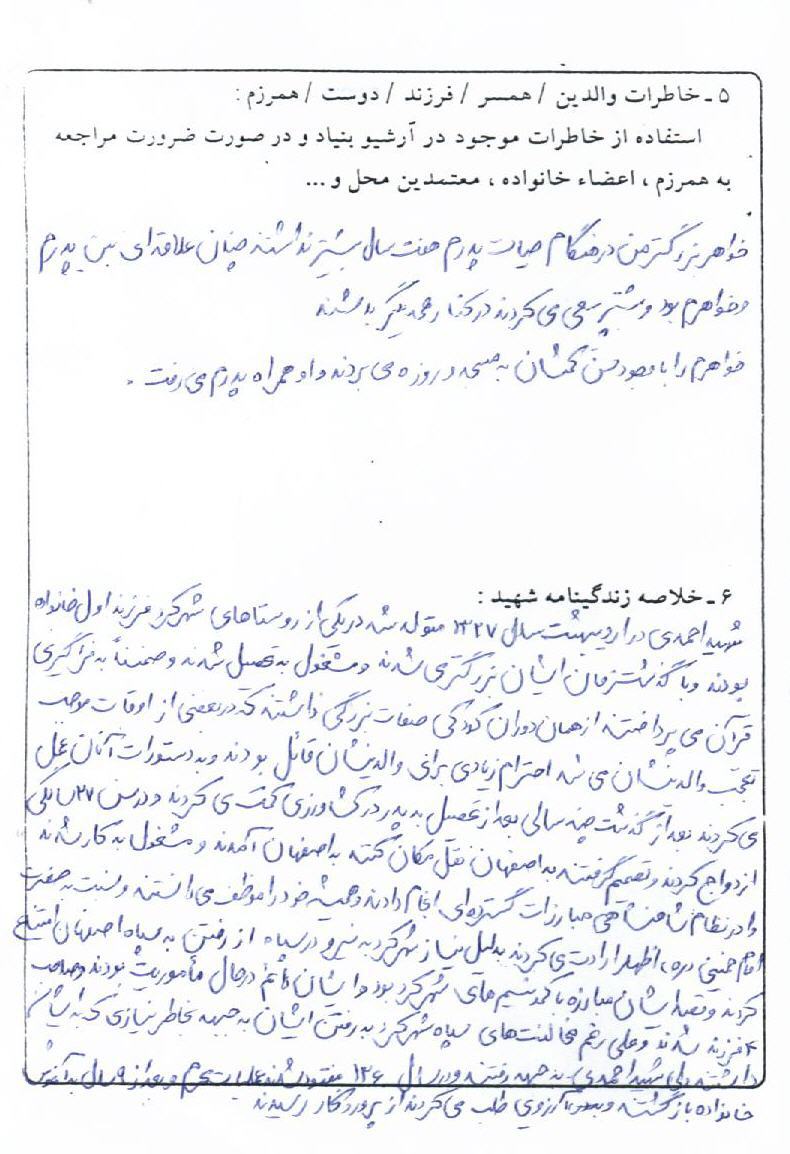 ۵ ـ خاطرات والدین / همسر / فرزند / دوست / همرزم :
استفاده از خاطرات موجود در آرشیو بنیاد و در صورت ضرورت مراجعه
به همرزم ، اعضاء خانواده ، معتمدین محل و ...
خواهر بزرگتر من در هنگام حیات پدرم هفت سال بیشتر نداشتند چنان علاقه‌ای بین پدرم
و خواهرم بود و بیشتر سعی می کردند در کنار همدیگر باشند
خواهرم را با وجود سن کمشان به مسجد و روزه می بردند و او همراه پدرم می رفت .
۶ ـ خلاصه زندگینامه شهید :
شهید احمدی در اردیبهشت سال ۱۳۲۷ متولد شد در یکی از روستاهای شهرکرد فرزند اول خانواده
بودند و با گذشت زمان ایشان بزرگتر می شدند و مشغول به تحصیل شدند و ضمناً به فراگیری
قرآن می پرداختند از همان دوران کودکی صفات بزرگی داشتند که در بعضی از اوقات موجب
تعجب والدینشان می شد احترام زیادی برای والدینشان قائل بودند و به دستورات آنان عمل
می کردند بعد از گذشت چند سالی بعد از تحصیل به پدر در کشاورزی کمک می کردند و در سن ۲۷ سالگی
ازدواج کردند و تصمیم گرفتند به اصفهان نقل مکان کنند به اصفهان آمدند و مشغول به کار شدند
و در نظام شاهنشاهی مبارزات گسترده‌ای انجام دادند و همیشه خود را موظف می دانستند و نسبت به حضرت
امام خمینی (ره) اظهار ارادت می کردند بدلیل نیاز شهرکرد به نیرو در سپاه از رفتن به سپاه اصفهان امتناع
کردند و قصد ایشان مبارزه با کمونیسم‌های شهرکرد بود و ایشان دائم در حال مأموریت بودند و صاحب
۴ فرزند شدند و علی رغم مخالفت‌های سپاه شهرکرد به رفتن ایشان به جبهه بخاطر نیازی که به ایشان
داشتند ولی شهید احمدی به جبهه رفتند و در سال مفقود شدند عملیات محرم و بعد از ۹ سال به آغوش
خانواده بازگشتند و آرزویی طلب می کردند از پروردگار رسیدند